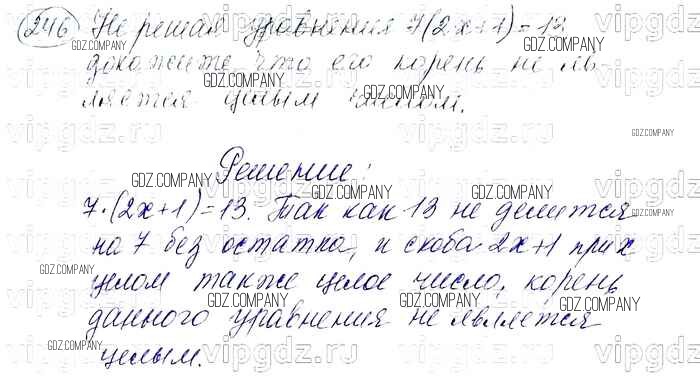 246 Не решая уравнения 7(2x+1)=13
докажите, что его корень не яв-
ляется целым числом.
Решение:
7·(2x+1)=13. Так как 13 не делится
на 7 без остатка, и скоба 2x+1 при x
целом также целое число, корень
данного уравнения не является
целым.
GDZ.COMPANY
vipgdz.ru